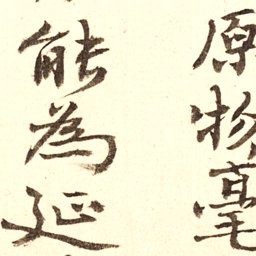 原物毫
能為延